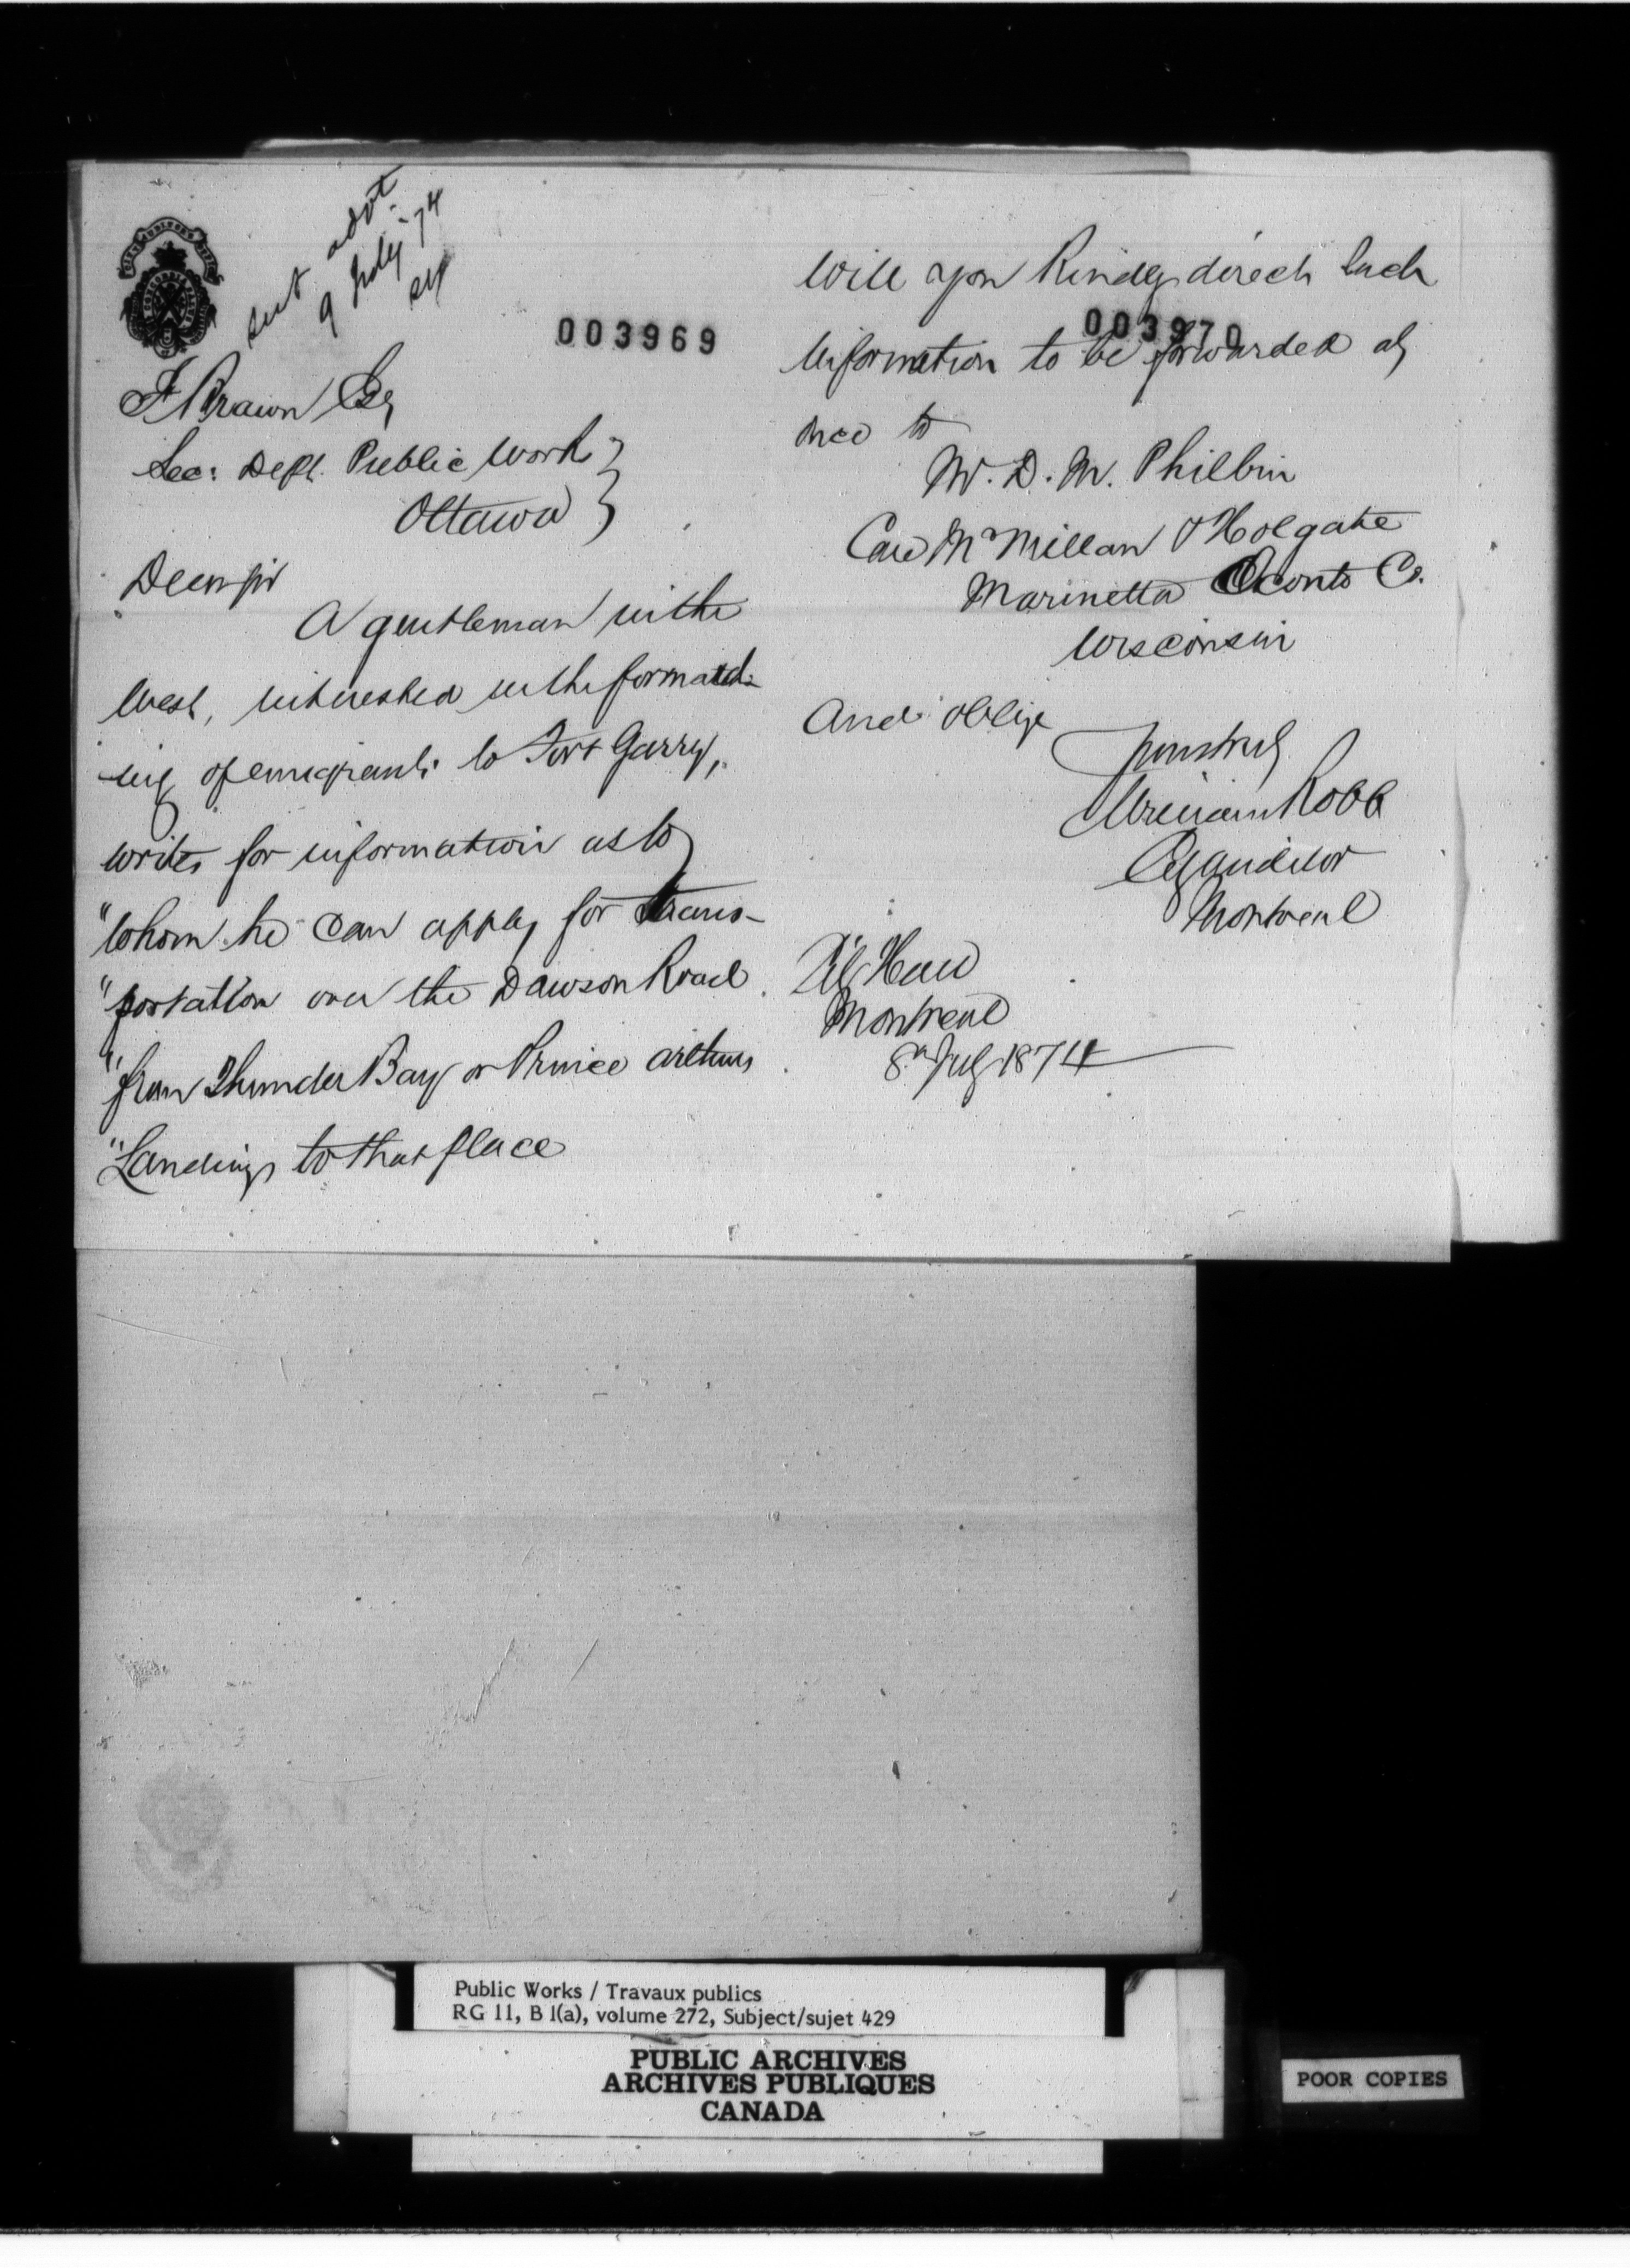 CITY AUDITOR'S DEPT
CONCORDIA SALUS
sent advt.
9 July - 74
003969
F Braun Esq
Sec: Dept. Public Works
Ottawa
Dear Sir
A gentleman in the
West, interested in the forward-
ing of emigrants to Fort Garry,
writes for information as to
"whom he can apply for trans-
"portation over the Dawson Road
"from Thunder Bay or Prince Arthurs
"Landing, to that place
003970
Will you Kindly direct such
information to be forwarded at
once to
W. D. M. Philbin
Care McMillan & Holgate
Marinetta Oconto Co.
Wisconsin
And oblige
Yours truly
William Robb
City Auditor
Montreal
City Hall
Montreal
8th July 1874
Public Works / Travaux publics
RG 11, B 1(a), volume 272, Subject/sujet 429
PUBLIC ARCHIVES
ARCHIVES PUBLIQUES
CANADA
POOR COPIES